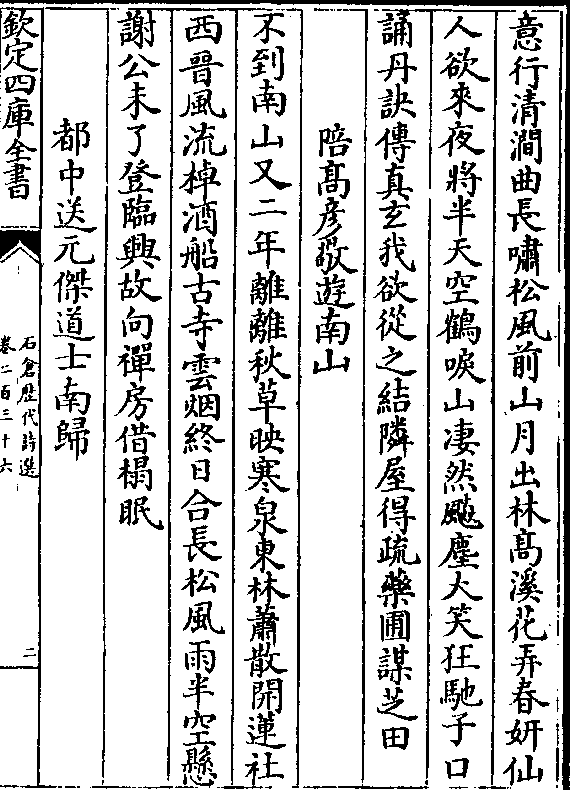 意行清澗曲長嘯松風前山月出林高溪花弄春妍仙
人欲來夜將半天空鶴唳山凄然颷塵大笑狂馳子口
誦丹訣傳真玄我欲從之結隣屋得疏藥圃謀芝田
陪高彦敬遊南山
不到南山又二年離離秋草映寒泉東林蕭散開蓮社
西晉風流棹酒船古寺雲烟終日合長松風雨半空懸
謝公未了登臨興故向禪房借榻眠
都中送元傑道士南歸
欽定四庫全書
石倉歴代詩選
卷二百三十六
二